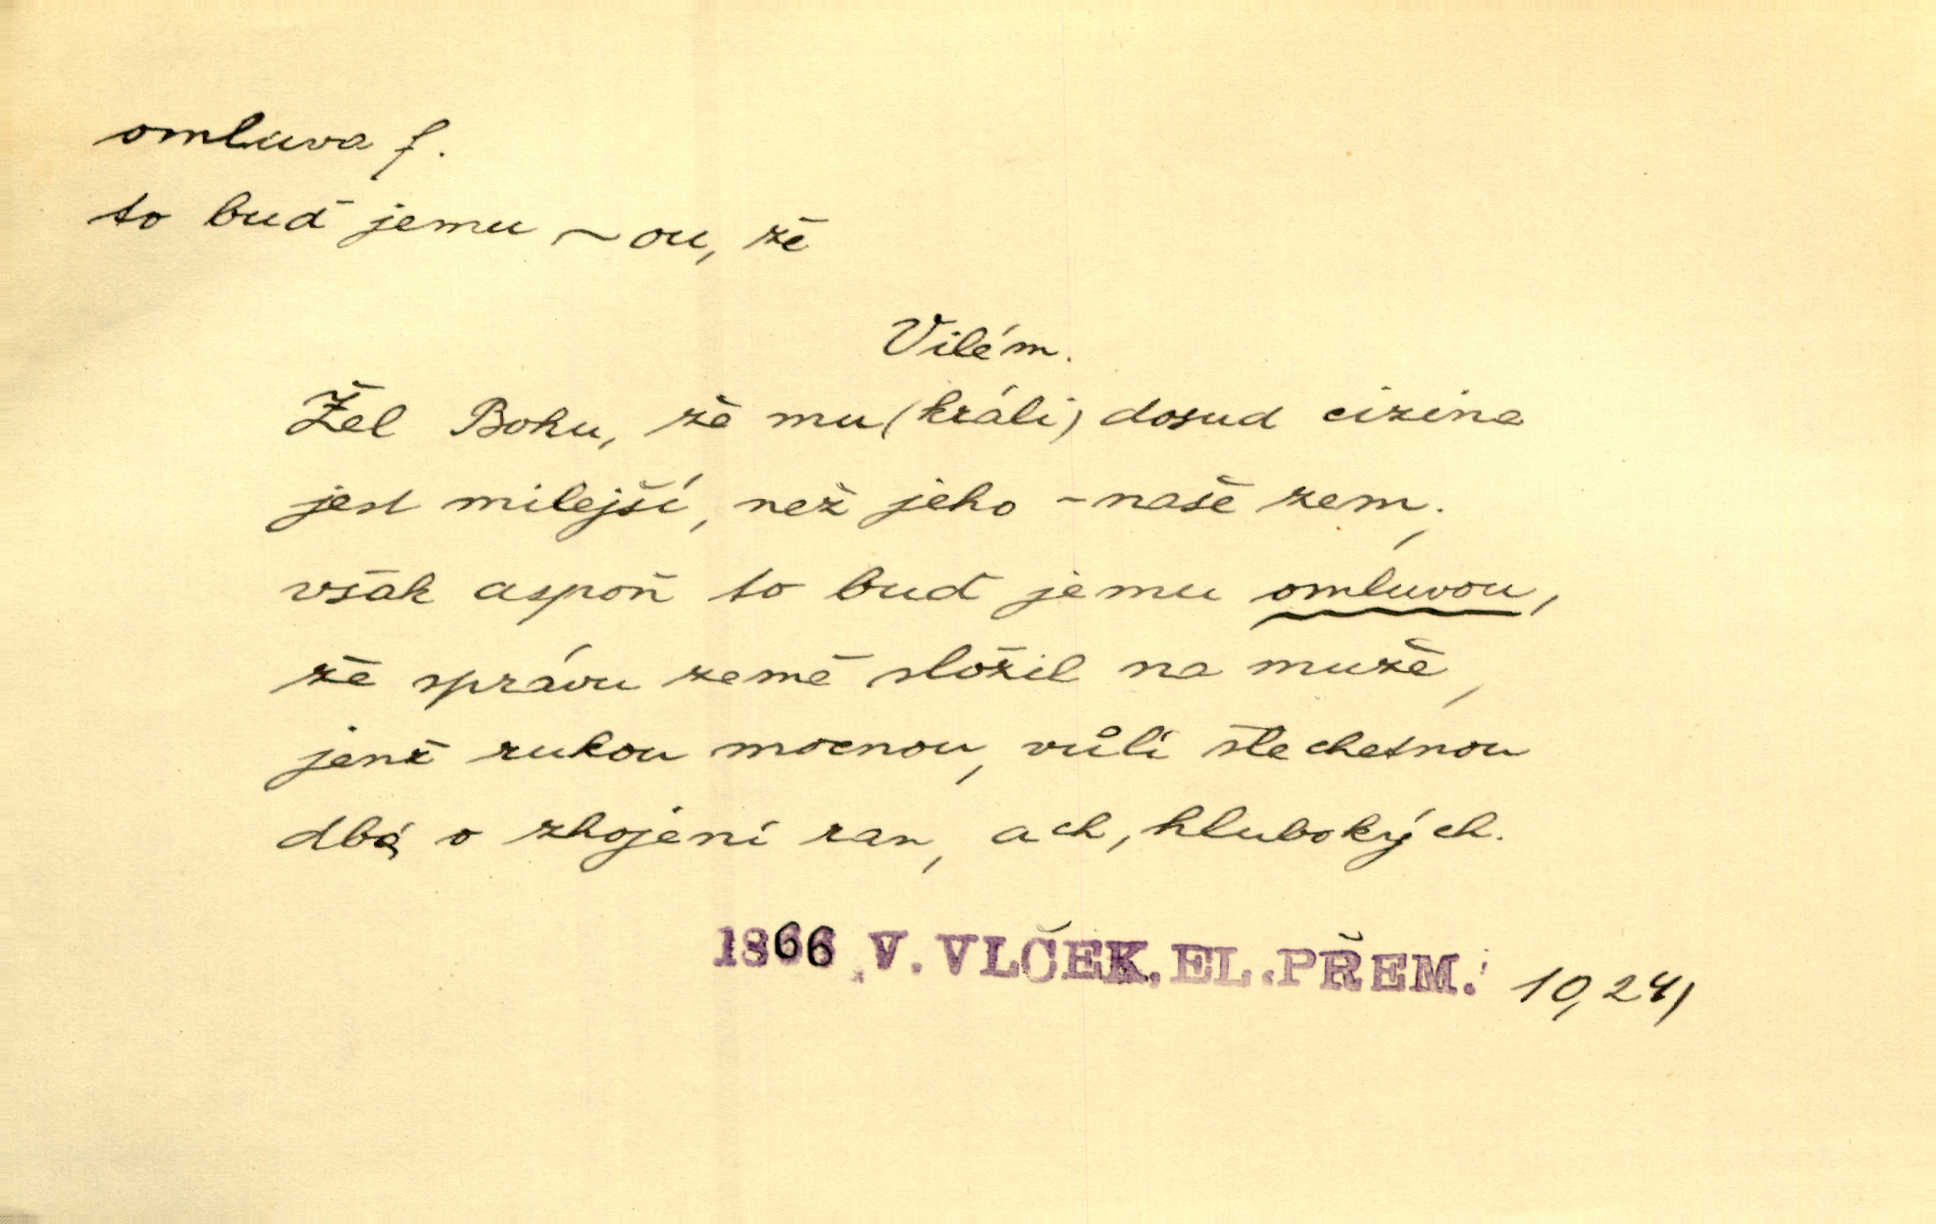 omluva f.
to buď jemu ~ou, že
Vilém.
Žel Bohu, že mu (králi) dosud cizina
jest milejší, než jeho – naše zem;
však aspoň to buď jemu omluvou,
že správu země složil na muže,
jenž rukou mocnou, vůlí šlechetnou
dbá o zhojení ran, ach, hlubokých.
1866 V. VLČEK, EL. PŘEM. 10, 24,